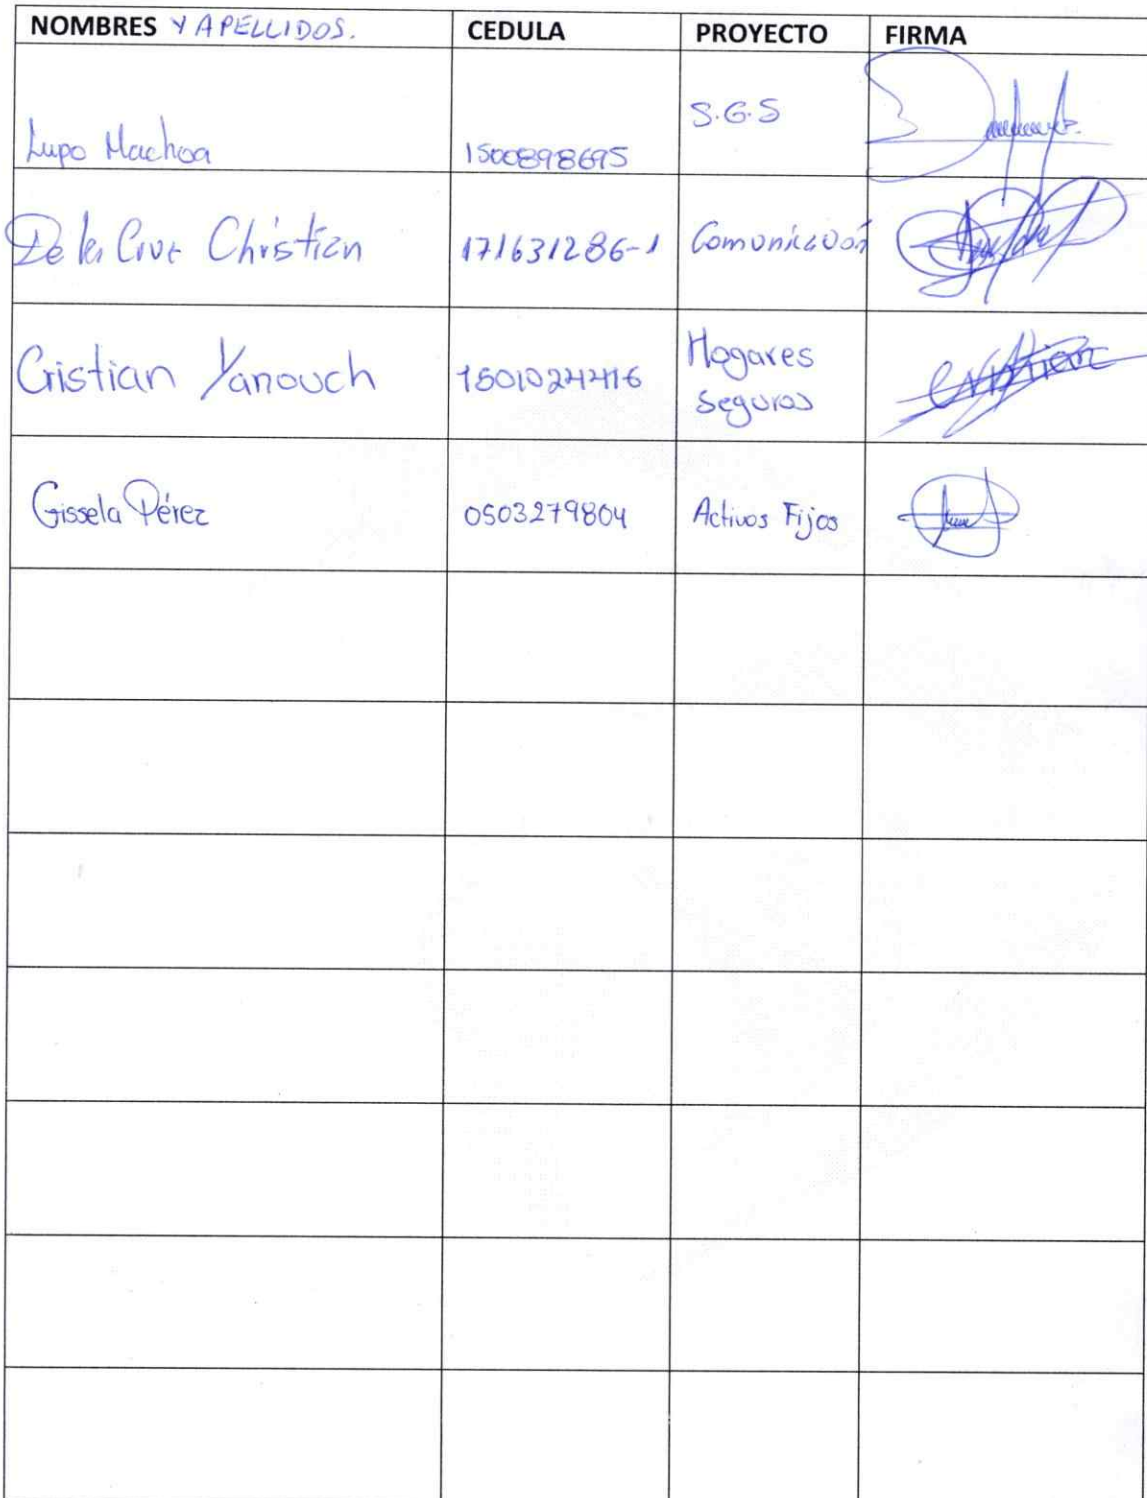 NOMBRES Y APELLIDOS. CEDULA PROYECTO FIRMA
Lupo Machoa 1500898695 S.G.S
De la Cruz Christian 171631286-1 Comunicación
Cristian Yanouch 1501024416 Hogares
Seguros Cristian
Gissela Pérez 0503279804 Activos Fijos